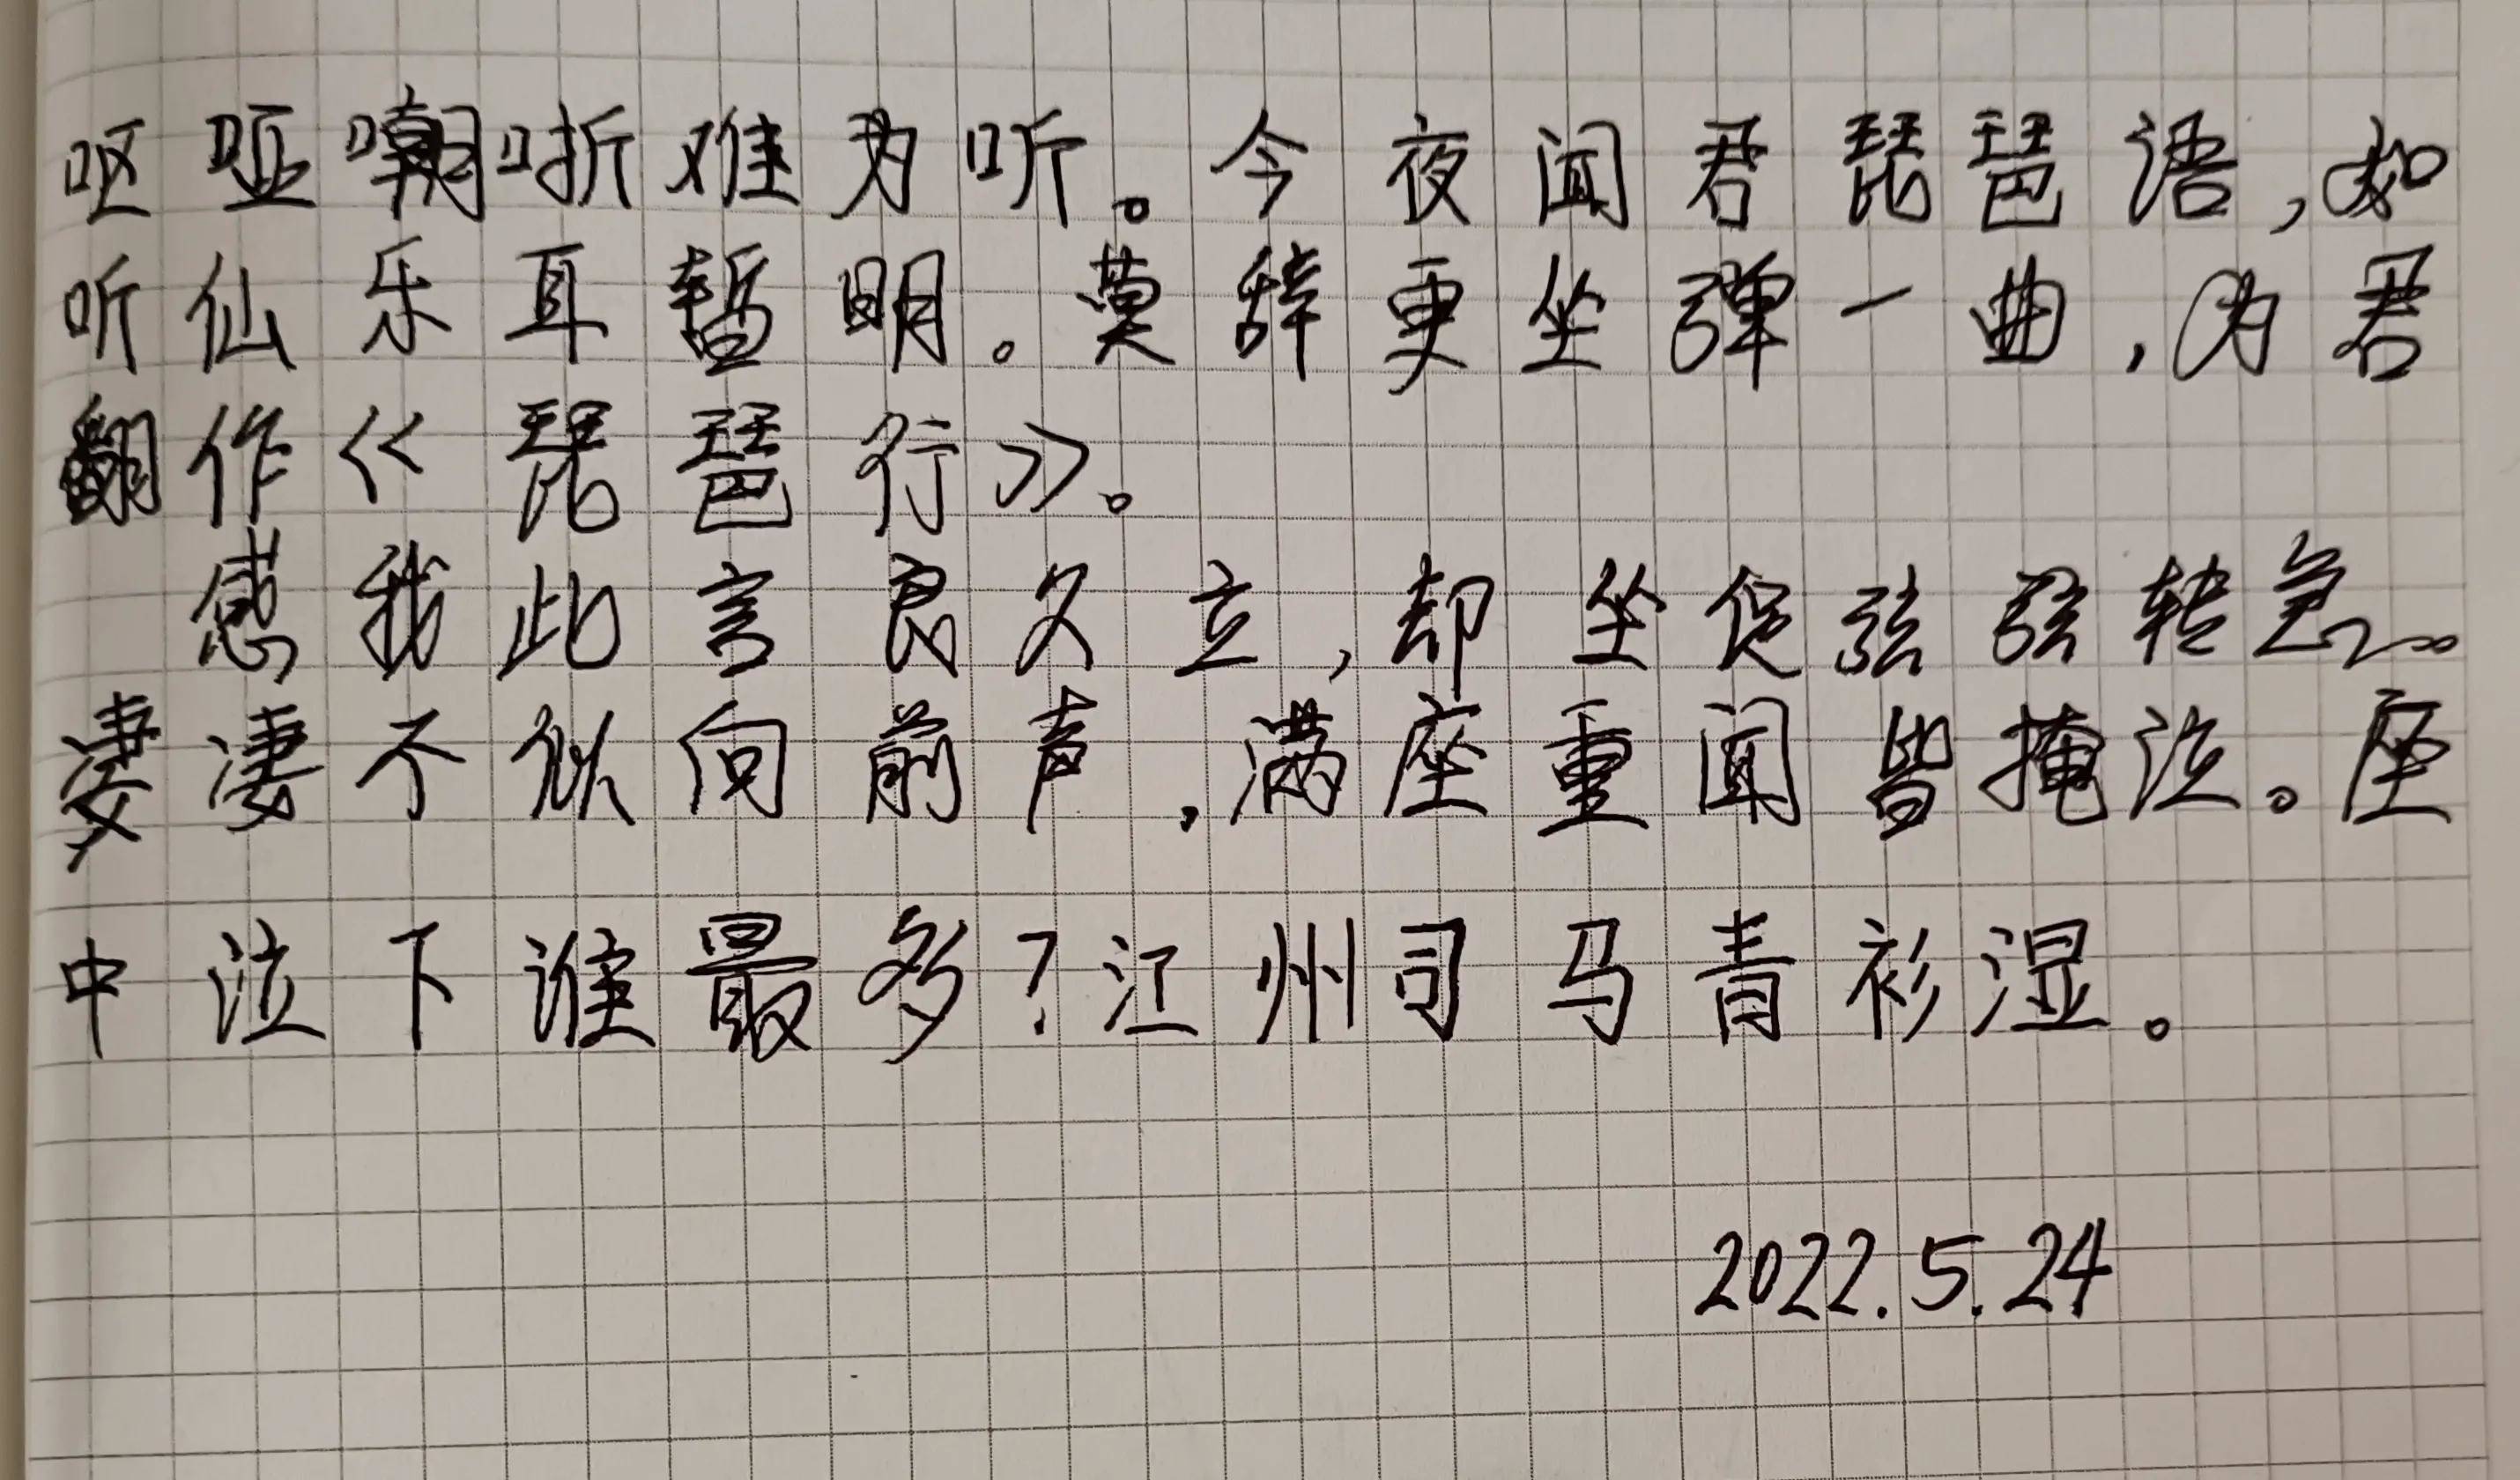 呕哑嘲哳难为听。今夜闻君琵琶语,如
听仙乐耳暂明。莫辞更坐弹一曲,为君
翻作《琵琶行》。
感我此言良久立,却坐促弦弦转急。
凄凄不似向前声,满座重闻皆掩泣。座
中泣下谁最多?江州司马青衫湿。
2022.5.24